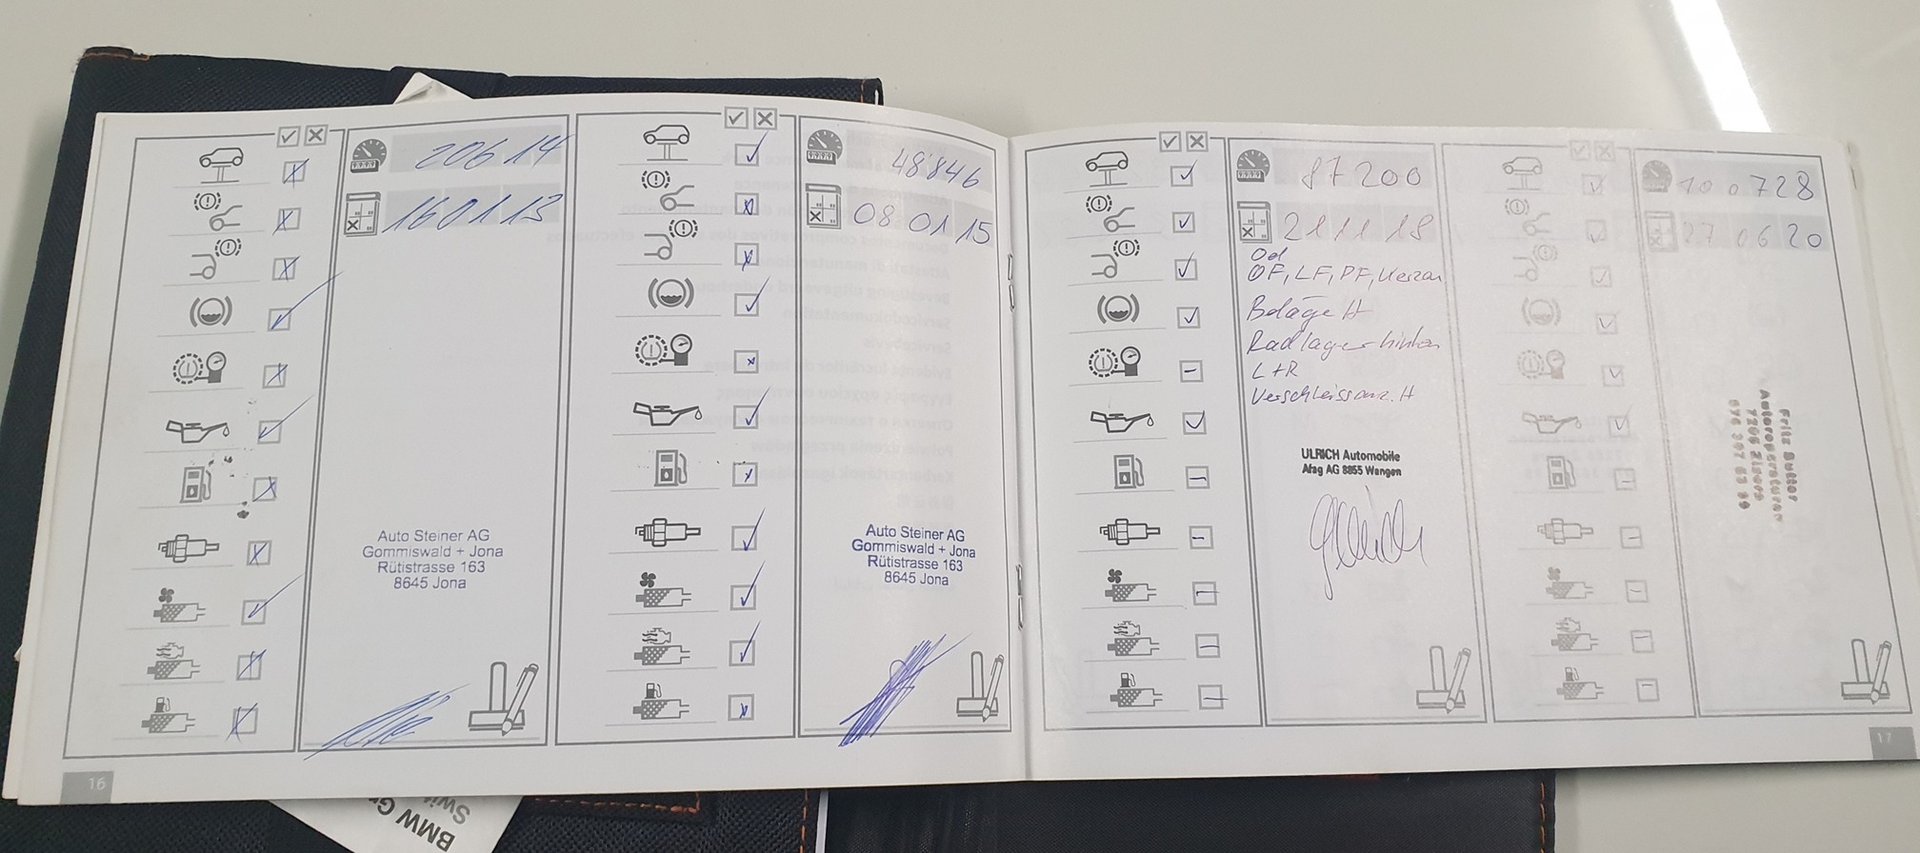 20614
160113
Auto Steiner AG
Gommiswald + Jona
Rütistrasse 163
8645 Jona
16
48'846
08 01 15
Auto Steiner AG
Gommiswald + Jona
Rütistrasse 163
8645 Jona
87200
21 11 18
OF, LF, PF,
Beläge H
Radlager hinten
L+R
Verschleissanz. H
ULRICH Automobile
Afag AG 8855 Wangen
100728
27 06 20
Fritz Sutter
Autoreparaturen
7205 Zizers
17
BMW